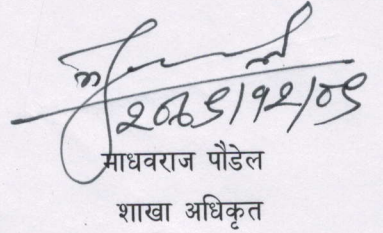 २०७९/१२/०९
माधवराज पौडेल
शाखा अधिकृत